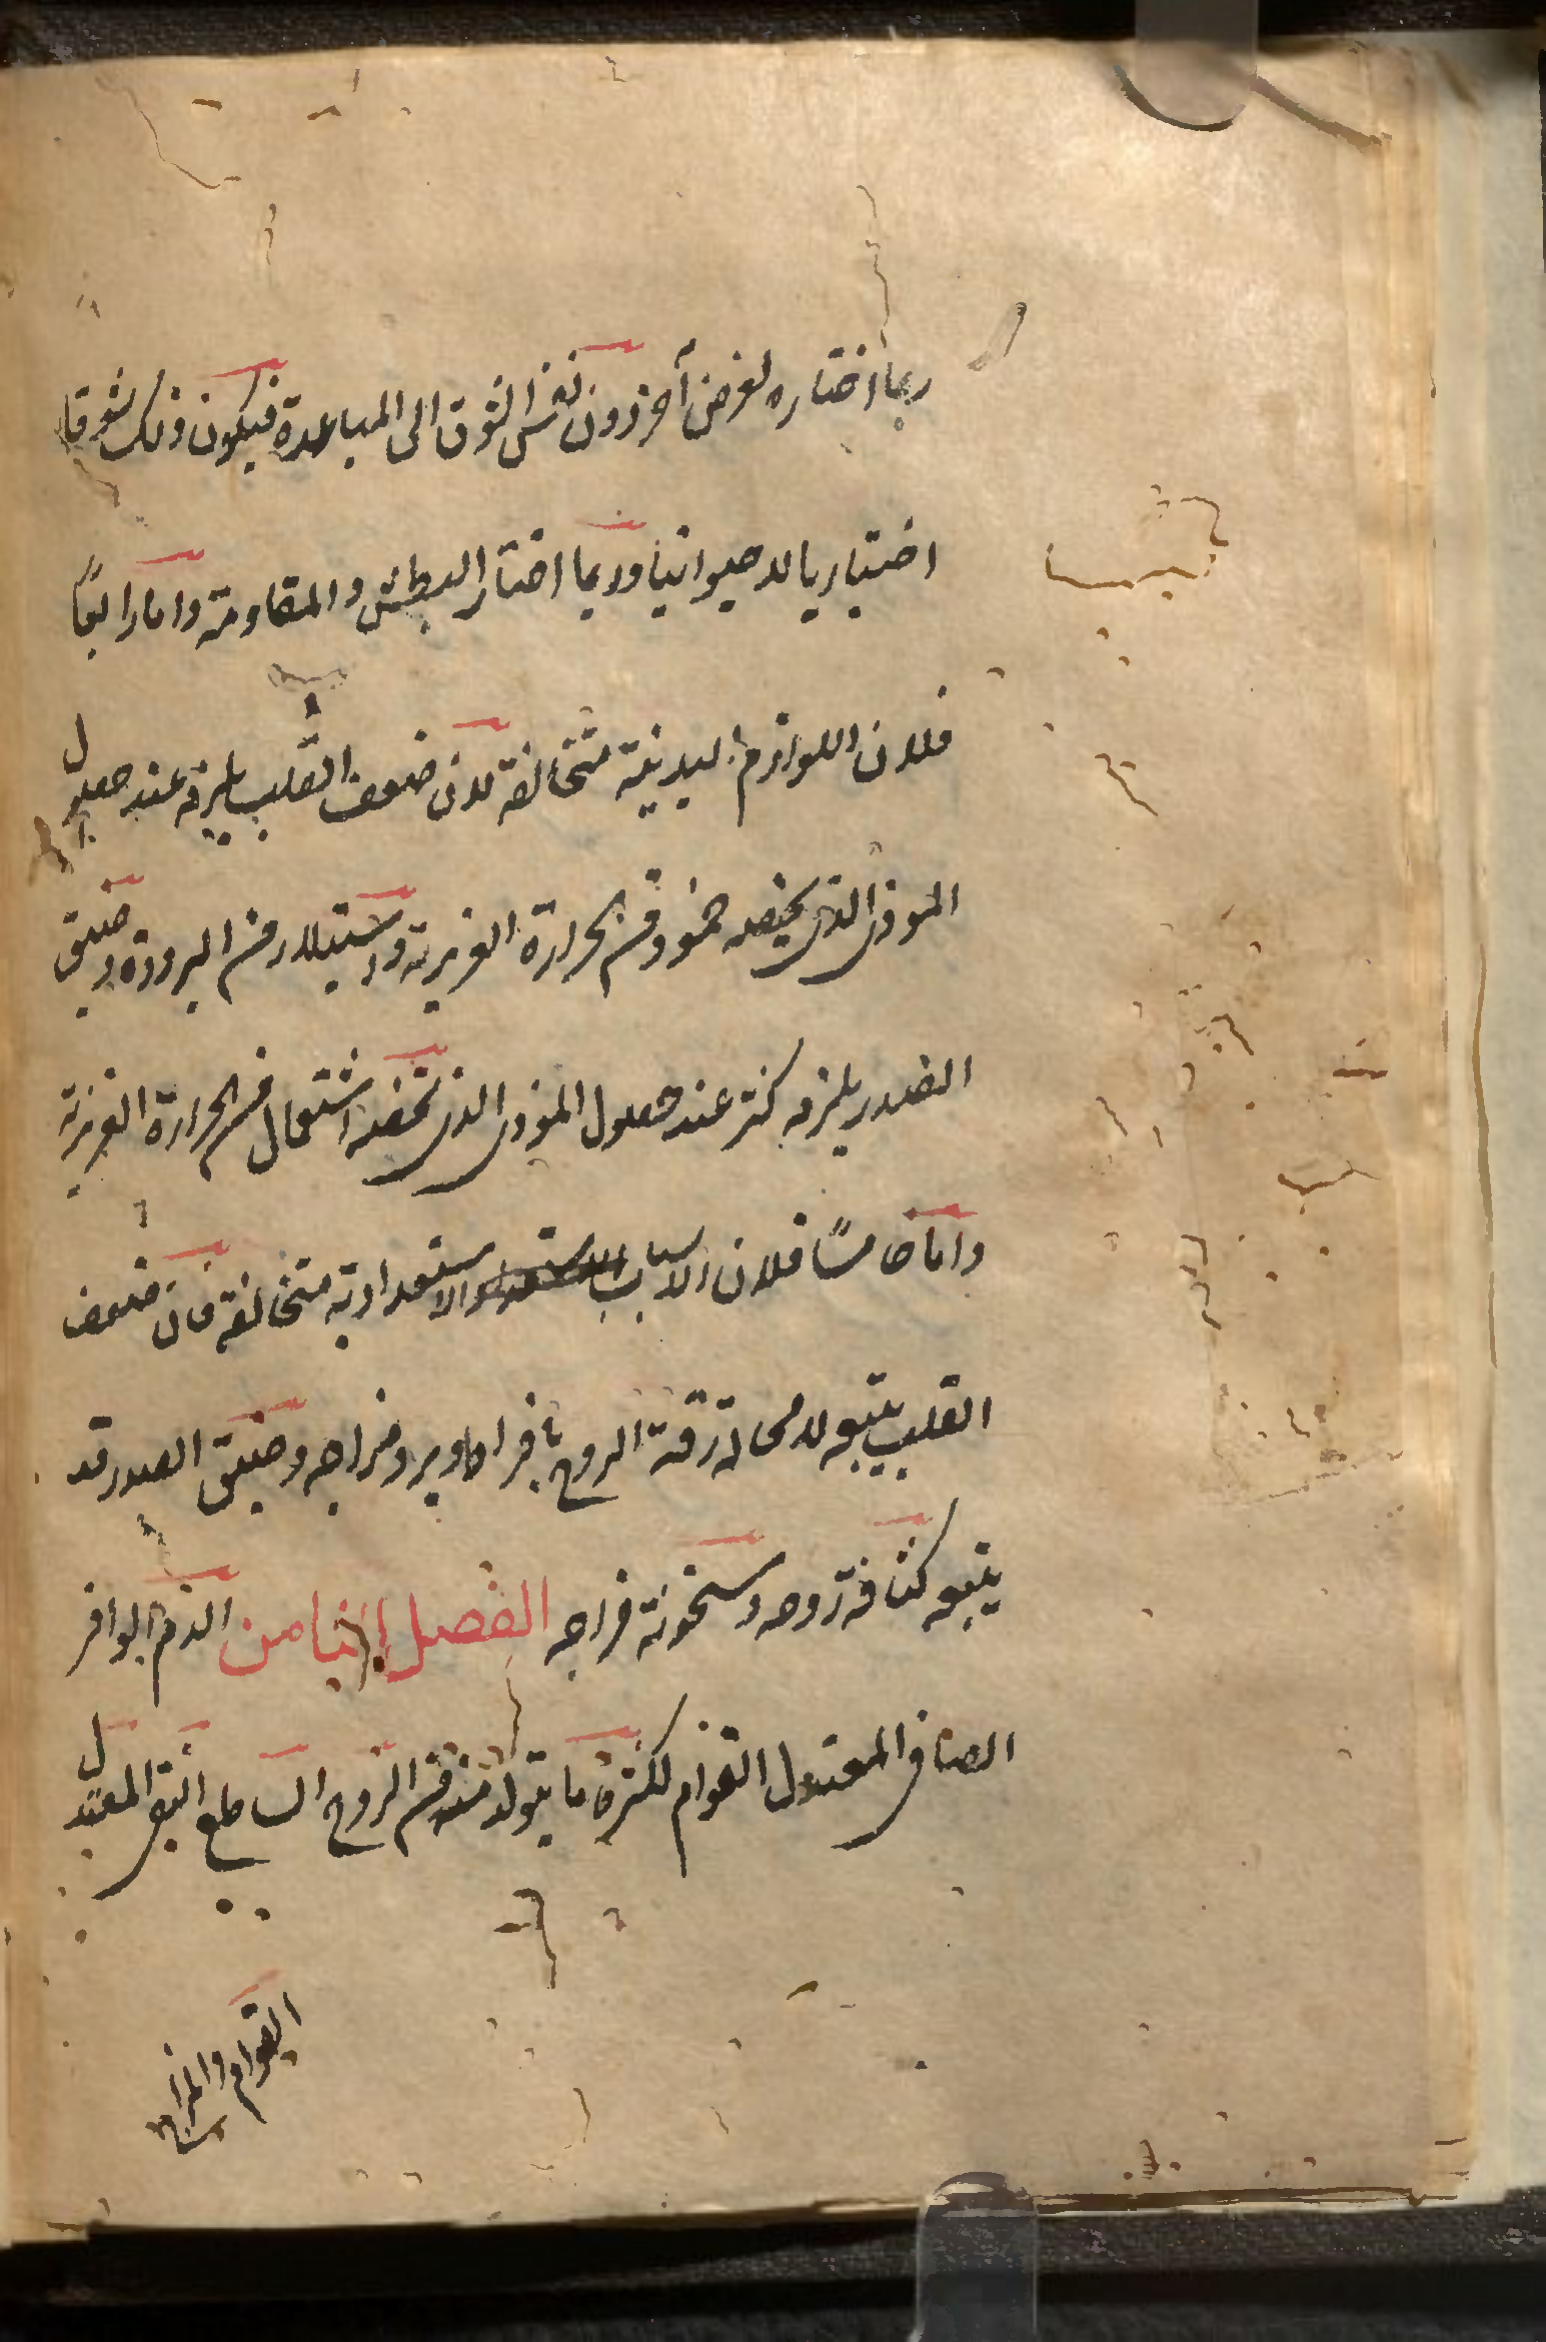 ربما اختاره لغرض آخر دون نفس الشوق الى المباعدة فيكون ذلك شوقا
اختياريا لا حيوانيا وربما اختار البطش والمقاومة واما رابعًا
فلان اللوازم البدنية متخالفة لان ضعف القلب يلزمه عند حصول
الموذى الذى يخصه خمود من الحرارة الغريزية واستيلاء من البرودة وضيق
الصدر يلزمه كثر عند حصول الموذى الذى يخصه اشتعال من الحرارة الغريزية
واما خامسًا فلان الاسباب الاستعدادية متخالفة فان ضعف
القلب يتبعه لا محالة رقة الروح بافراط وبرد مزاجه وضيق الصدر قد
يتبعه كثافة روحه وسخونة مزاجه الفصل الثامن الدم الوافر
الصافى المعتدل القوام لكثرة ما يتولد منه من الروح الساطع النقى المعتدل
القوام والمزاج